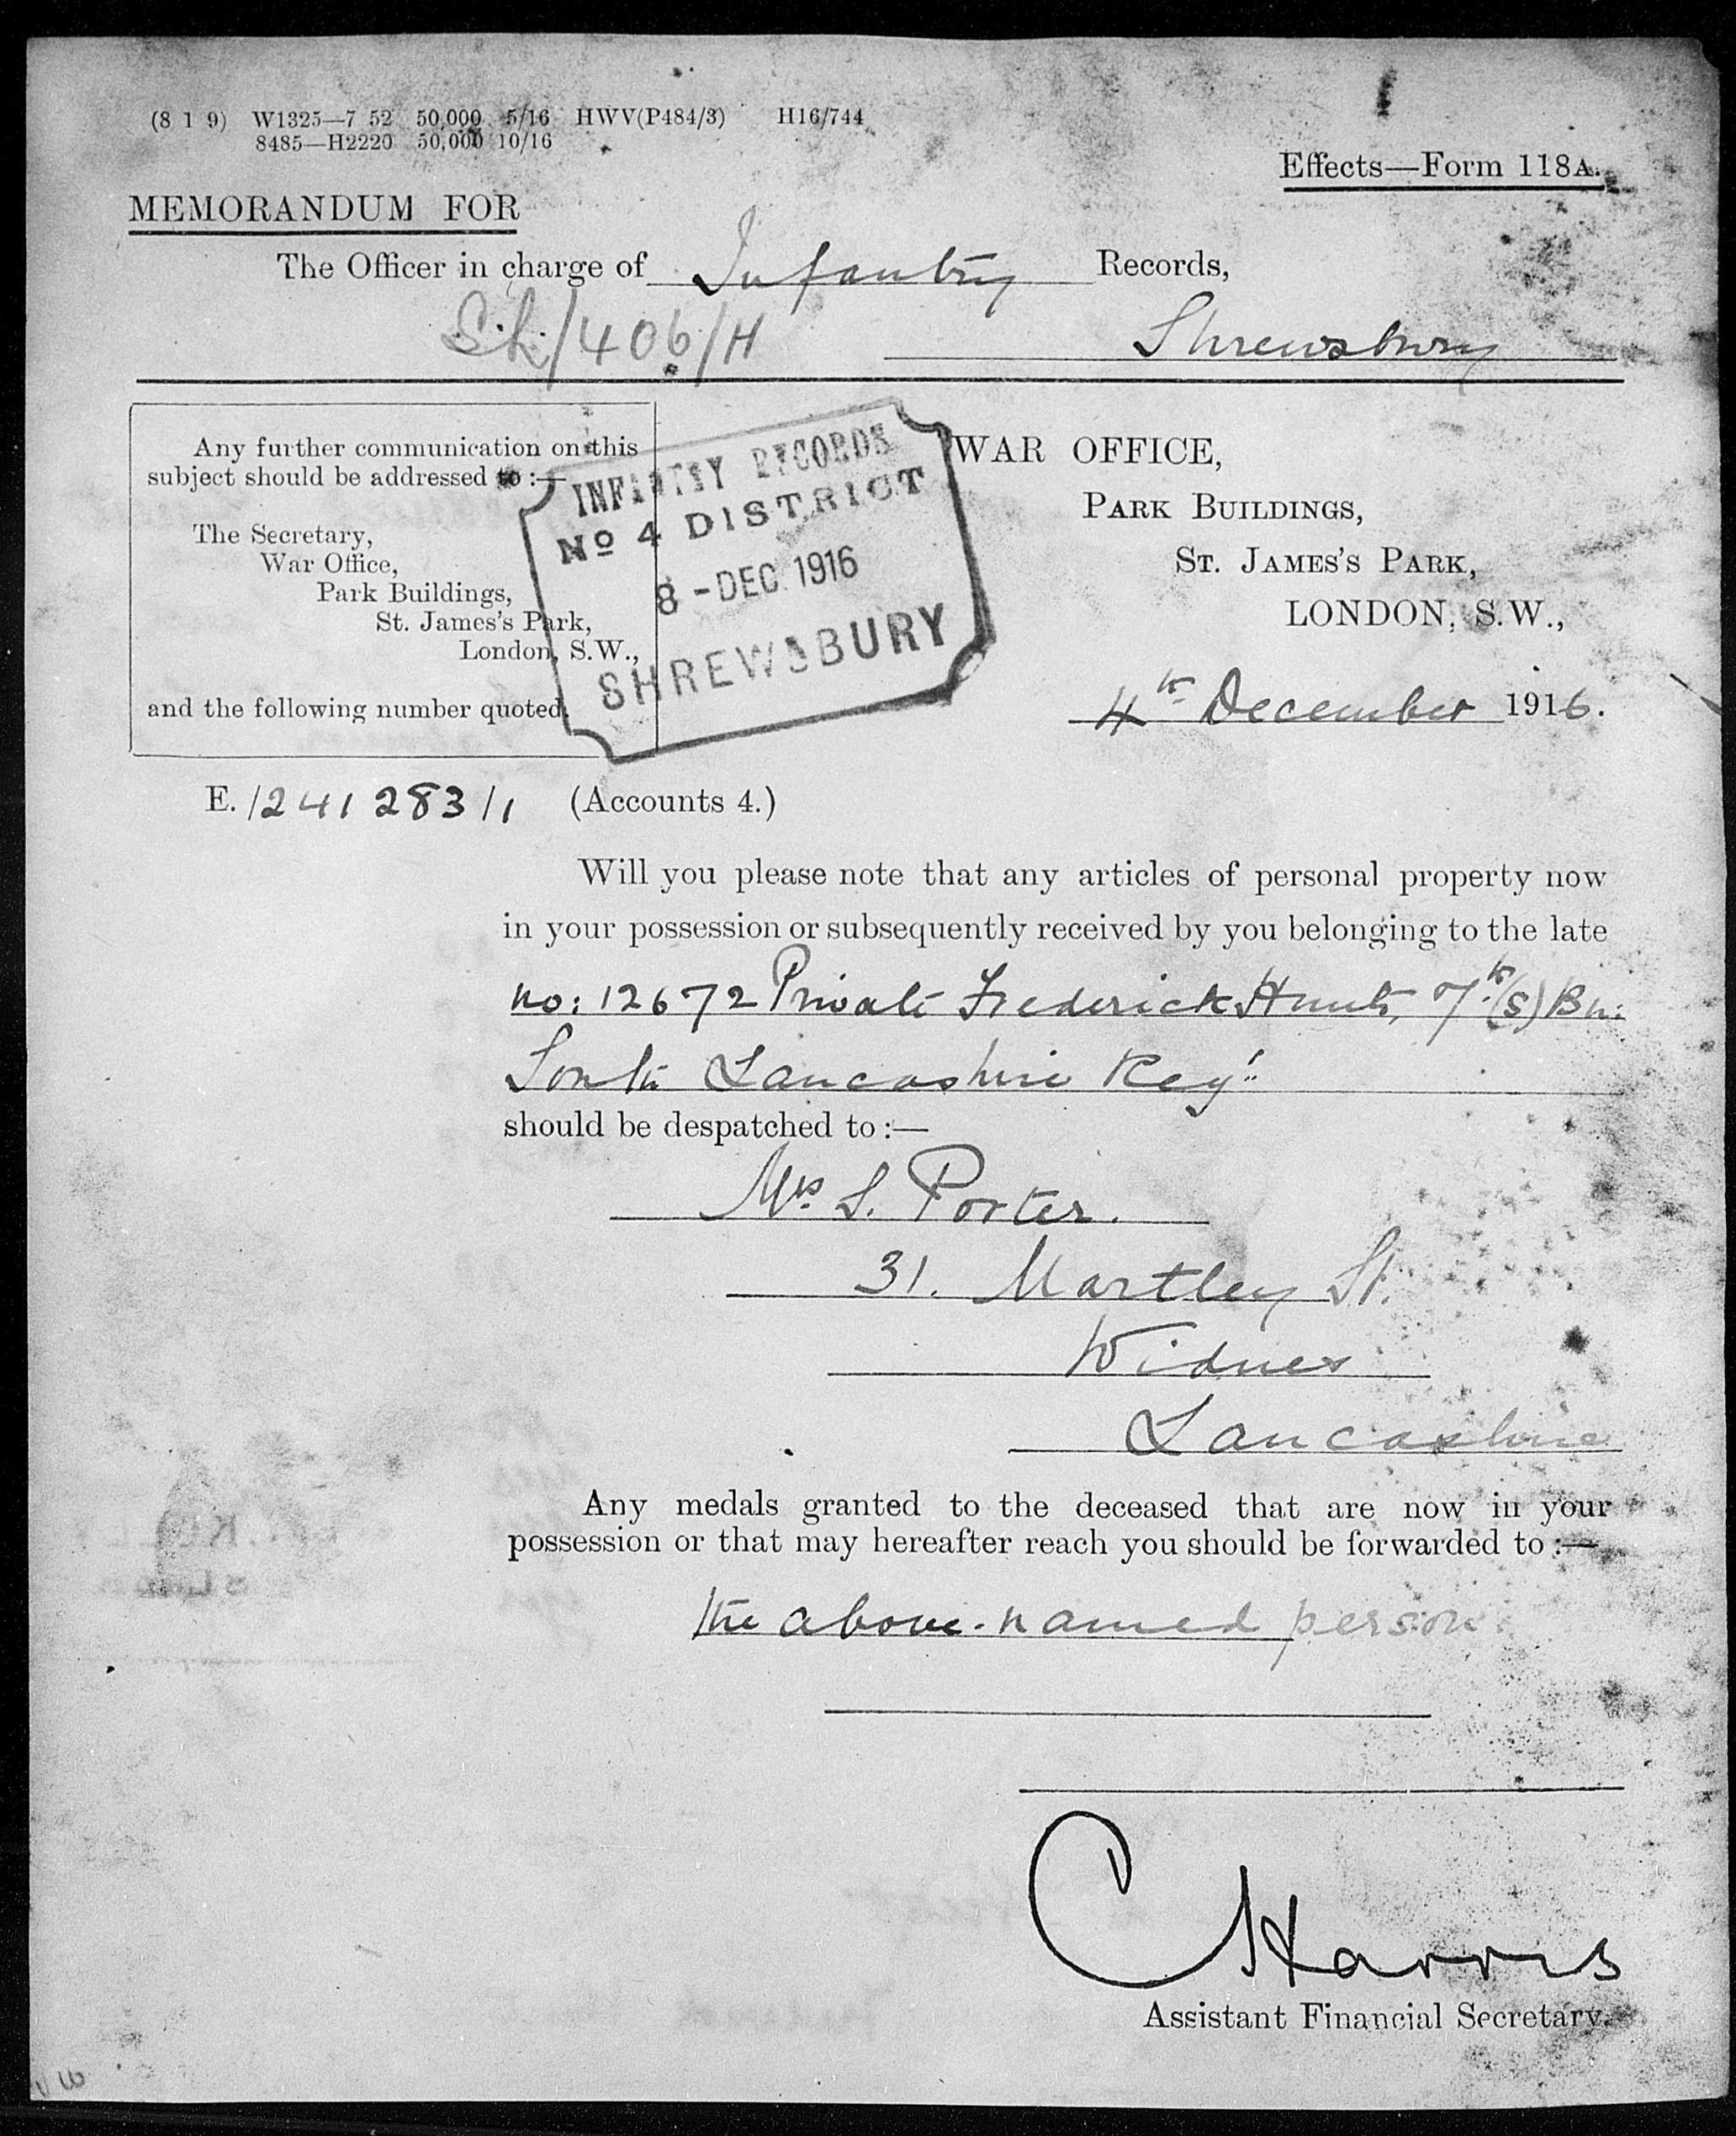 (8 1 9) W1325—7 52 50,000 5/16 HWV(P484/3) H16/744
8485—H2220 50,000 10/16
Effects—Form 118A.
MEMORANDUM FOR
The Officer in charge of Infantry Records,
Sh/406/H
Shrewsbury
Any further communication on this
subject should be addressed to :—
The Secretary,
War Office,
Park Buildings,
St. James's Park,
London, S.W.,
and the following number quoted.
INFANTRY RECORDS
No 4 DISTRICT
8 - DEC. 1916
SHREWSBURY
WAR OFFICE,
PARK BUILDINGS,
ST. JAMES'S PARK,
LONDON, S.W.,
4th December 1916.
E./241283/1 (Accounts 4.)
Will you please note that any articles of personal property now
in your possession or subsequently received by you belonging to the late
no: 12672 Private Frederick Hunt, 7th (S) Bn:
South Lancashire Regt.
should be despatched to :—
Mrs S. Porter.
31. Martley St.
Widnes
Lancashire
Any medals granted to the deceased that are now in your
possession or that may hereafter reach you should be forwarded to :—
the above-named person.
C Harris
Assistant Financial Secretary.